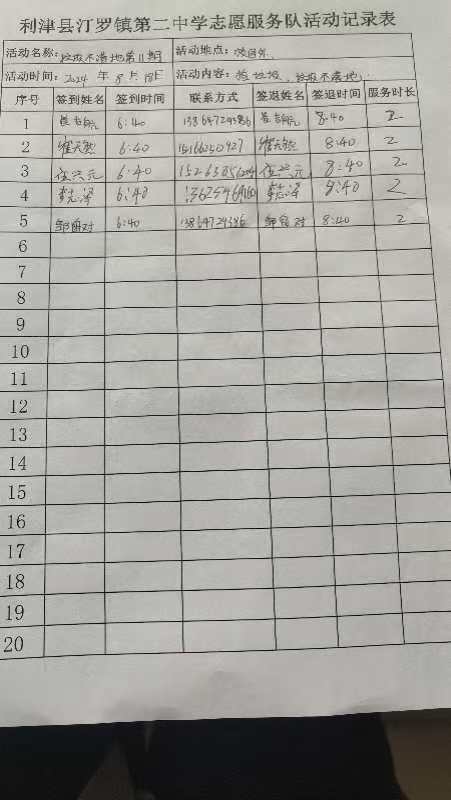 利津县汀罗镇第二中学志愿服务队活动记录表
活动名称: 垃圾不落地第11期 活动地点: 校园外
活动时间: 2024 年 8 月 18日 活动内容: 捡垃圾、垃圾不落地
序号 签到姓名 签到时间 联系方式 签退姓名 签退时间 服务时长
1 6:40 8:40 2
2 6:40 8:40 2
3 任兴元 6:40 任兴元 8:40 2
4 李志泽 6:40 李志泽 8:40 2
5 6:40 13864729386 8:40 2
6
7
8
9
10
11
12
13
14
15
16
17
18
19
20